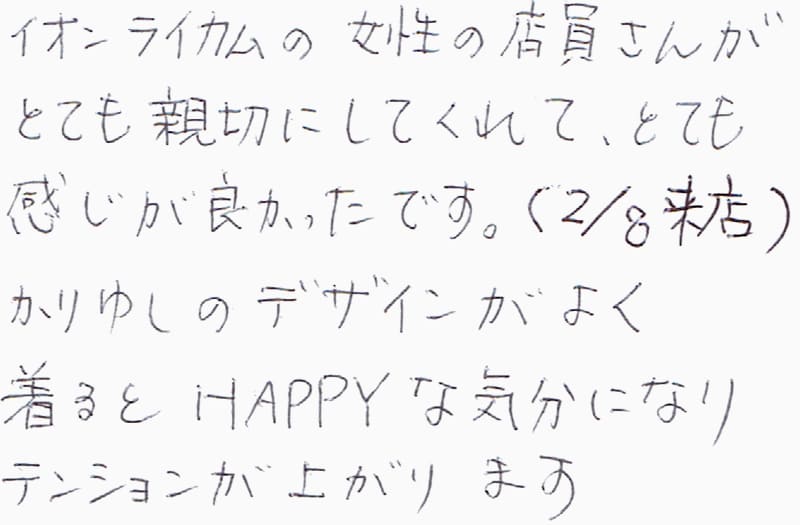 イオンライカムの女性の店員さんが
とても親切にしてくれて、とても
感じが良かったです。(2/8来店)
かりゆしのデザインがよく
着るとHAPPYな気分になり
テンションが上がります